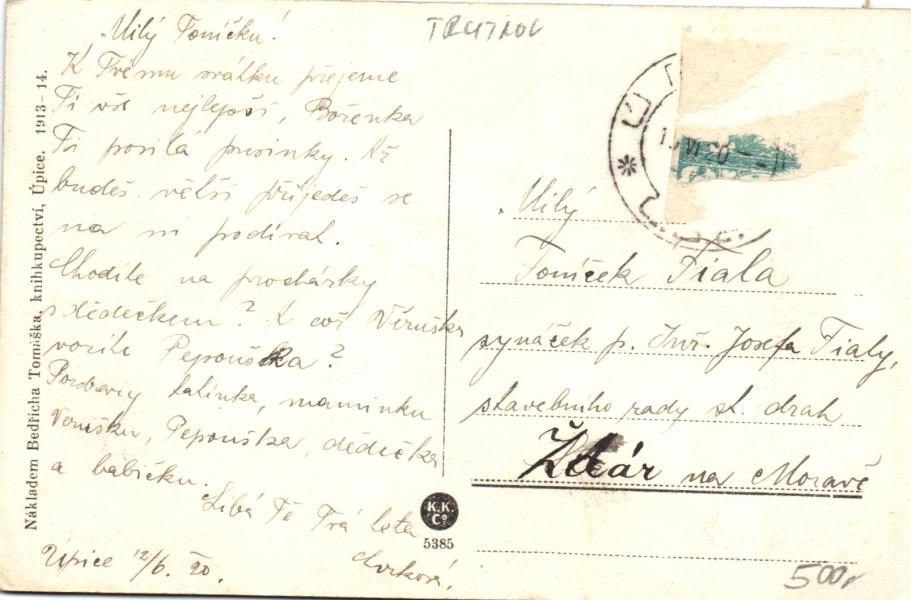 Milý Toníčku!
K Tvému svátku přejeme
Ti vše nejlepší, Boženka
Ti posílá pusinky. Až
budeš větší přijedeš se
na ni podívat.
Chodíte na procházky
s dědečkem? A což Věruška
vozíte Pepouška?
Pozdravuj tatínka, maminku
Verušku, Pepouška, dědečka
a babičku.
Líbá Tě Tvá teta
Úpice 12/6. 20.
TRUTNOV
Milý
Toníček Fiala
synáček p. Inž. Josefa Fialy,
stavebního rady st. drah
Žďár na Moravě
500,-
Nákladem Bedřicha Tomáška, knihkupectví, Úpice. 1913-14.
K.K.
Co
5385
VI 20